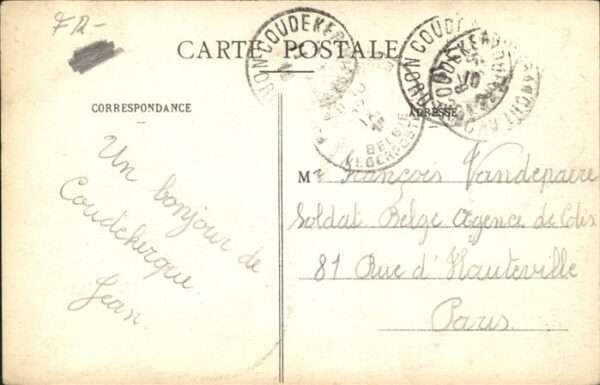 FR-
CARTE POSTALE
CORRESPONDANCE
ADRESSE
COUDEKER
BELGIE
LEGERPOST
Un bonjour de
Coudekerque
Jean
Mr François Vandepaere
Soldat Belge Agence de Colis
81 Rue d'Hauteville
Paris